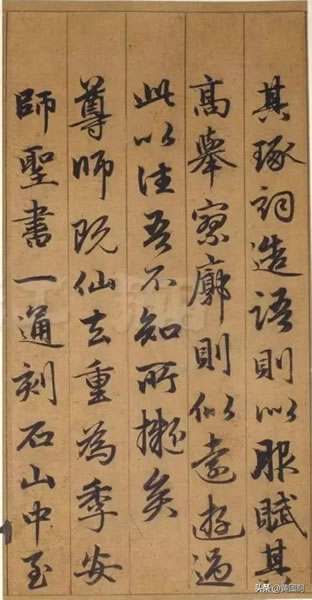 其琢詞造語則似服賦其
高舉寥廓則似遠遊過
此以往吾不知所擬矣
尊師既仙去重為季安
師聖書一通刻石山中至
头条